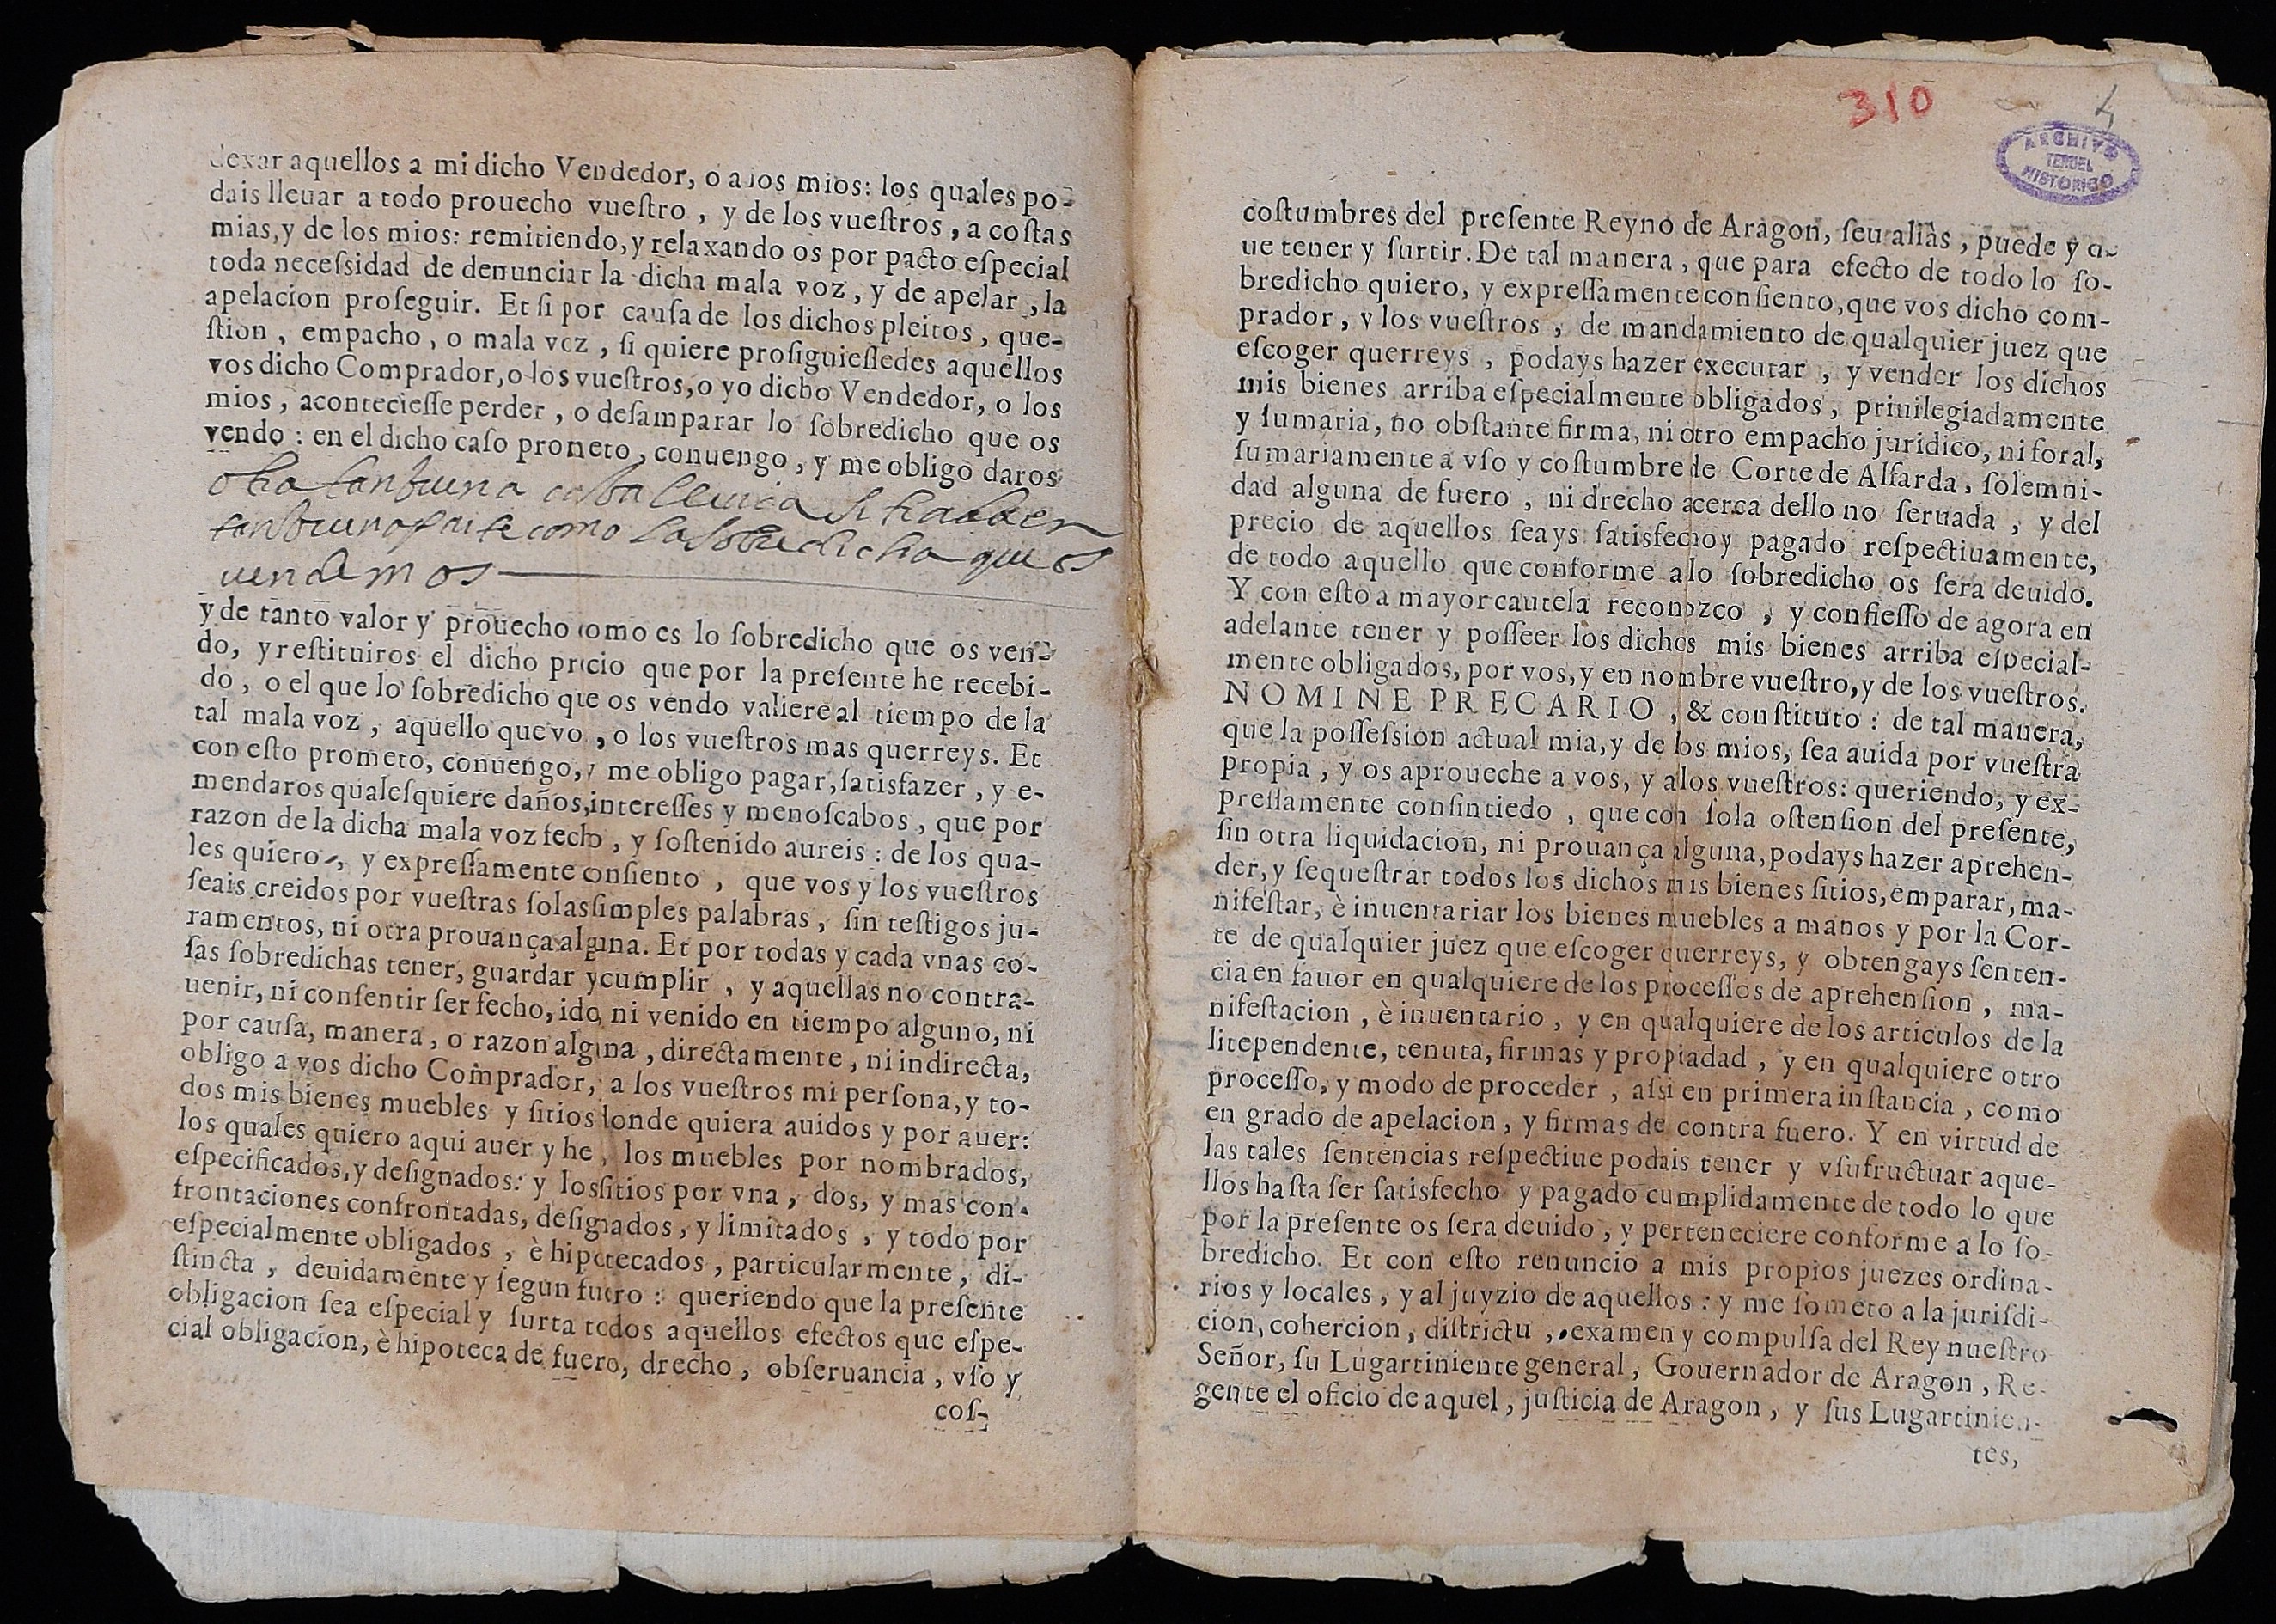 dexar aquellos a mi dicho Vendedor, o a los mios: los quales po-
dais lleuar a todo prouecho vueſtro, y de los vueſtros, a coſtas
mias, y de los mios: remitiendo, y relaxando os por pacto eſpecial
toda neceſsidad de denunciar la dicha mala voz, y de apelar, la
apelacion proſeguir. Et ſi por cauſa de los dichos pleitos, que-
ſtion, empacho, o mala voz, ſi quiere proſiguieſſedes aquellos
vos dicho Comprador, o los vueſtros, o yo dicho Vendedor, o los
mios, aconteciesſe perder, o deſamparar lo ſobredicho que os
vendo: en el dicho caſo prometo, conuengo, y me obligo daros
otra tan buena
tan buena parte como la sobredicha que os
uendemos
y de tanto valor y prouecho como es lo ſobredicho que os ven-
do, y reſtituiros el dicho precio que por la preſente he recebi-
do, o el que lo ſobredicho que os vendo valiere al tiempo de la
tal mala voz, aquello que vo, o los vueſtros mas querreys. Et
con eſto prometo, conuengo, y me obligo pagar, ſatisfazer, y e-
mendaros qualeſquiere daños, intereſſes y menoſcabos, que por
razon de la dicha mala voz fecho, y ſoſtenido aureis: de los qua-
les quiero, y expreſſamente conſiento, que vos y los vueſtros
ſeais creidos por vueſtras ſolas ſimples palabras, ſin teſtigos ju-
ramentos, ni otra prouança alguna. Et por todas y cada vnas co-
ſas ſobredichas tener, guardar y cumplir, y aquellas no contra-
uenir, ni conſentir ſer fecho, ido, ni venido en tiempo alguno, ni
por cauſa, manera, o razon alguna, directamente, ni indirecta,
obligo a vos dicho Comprador, a los vueſtros mi perſona, y to-
dos mis bienes muebles y ſitios donde quiera auidos y por auer:
los quales quiero aqui auer y he, los muebles por nombrados,
eſpecificados, y deſignados: y los ſitios por vna, dos, y mas con-
frontaciones confrontadas, deſignados, y limitados, y todo por
eſpecialmente obligados, è hipotecados, particularmente, di-
ſtincta, deuidamente y ſegun fuero: queriendo que la preſente
obligacion ſea eſpecial y ſurta todos aquellos efectos que eſpe-
cial obligacion, è hipoteca de fuero, drecho, obſeruancia, vſo y
coſ-
310
4
ARCHIVO
TERUEL
HISTORICO
coſtumbres del preſente Reyno de Aragon, ſeu aliàs, puede y de-
ue tener y ſurtir. De tal manera, que para efecto de todo lo ſo-
bredicho quiero, y expreſſamente conſiento, que vos dicho com-
prador, y los vueſtros, de mandamiento de qualquier juez que
eſcoger querreys, podays hazer executar, y vender los dichos
mis bienes arriba eſpecialmente obligados, priuilegiadamente
y ſumaria, no obſtante firma, ni otro empacho juridico, ni foral,
ſumariamente a vſo y coſtumbre de Corte de Alfarda, ſolemni-
dad alguna de fuero, ni drecho acerca dello no ſeruada, y del
precio de aquellos ſeays ſatisfecho y pagado reſpectiuamente,
de todo aquello que conforme a lo ſobredicho os ſera deuido.
Y con eſto a mayor cautela reconozco, y confieſſo de agora en
adelante tener y poſſeer los dichos mis bienes arriba eſpecial-
mente obligados, por vos, y en nombre vueſtro, y de los vueſtros.
NOMINE PRECARIO, & conſtituto: de tal manera,
que la poſſeſsion actual mia, y de los mios, ſea auida por vueſtra
propia, y os aproueche a vos, y a los vueſtros: queriendo, y ex-
preſſamente conſintiedo, que con ſola oſtenſion del preſente,
ſin otra liquidacion, ni prouança alguna, podays hazer aprehen-
der, y ſequeſtrar todos los dichos mis bienes ſitios, emparar, ma-
nifeſtar, è inuentariar los bienes muebles a manos y por la Cor-
te de qualquier juez que eſcoger querreys, y obtengays ſenten-
cia en fauor en qualquiere de los proceſſos de aprehenſion, ma-
nifeſtacion, è inuentario, y en qualquiere de los articulos de la
litependente, tenuta, firmas y propiadad, y en qualquiere otro
proceſſo, y modo de proceder, aſsi en primera inſtancia, como
en grado de apelacion, y firmas de contra fuero. Y en virtud de
las tales ſentencias reſpectiue podais tener y vſufructuar aque-
llos haſta ſer ſatisfecho y pagado cumplidamente de todo lo que
por la preſente os ſera deuido, y perteneciere conforme a lo ſo-
bredicho. Et con eſto renuncio a mis propios juezes ordina-
rios y locales, y al juyzio de aquellos: y me ſometo a la juriſdi-
cion, cohercion, diſtrictu, examen y compulſa del Rey nueſtro
Señor, ſu Lugartiniente general, Gouernador de Aragon, Re-
gente el oficio de aquel, juſticia de Aragon, y ſus Lugartinien-
tes,